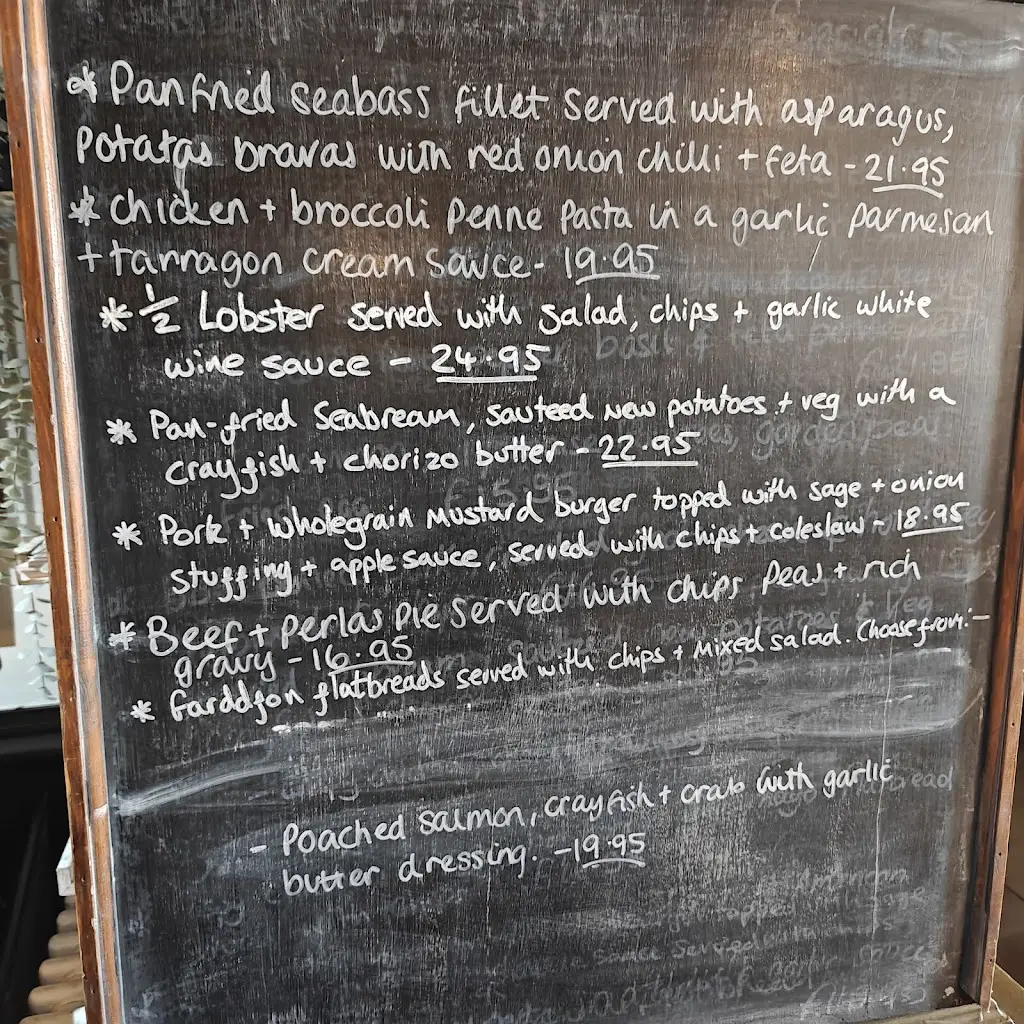 * Panfried seabass fillet served with asparagus,
potatas bravas with red onion chilli + feta - 21.95
* chicken + broccoli penne pasta in a garlic parmesan
+ tarragon cream sauce - 19.95
* 1/2 Lobster served with salad, chips + garlic white
wine sauce - 24.95
* Pan-fried Seabream, sauteed new potatoes + veg with a
crayfish + chorizo butter - 22.95
* Pork + wholegrain mustard burger topped with sage + onion
stuffing + apple sauce, served with chips + coleslaw - 18.95
* Beef + perlas pie served with chips peas + rich
gravy - 16.95
* Garddfon flatbreads served with chips + mixed salad. Choose from:-
- Poached salmon, crayfish + crab with garlic
butter dressing. - 19.95